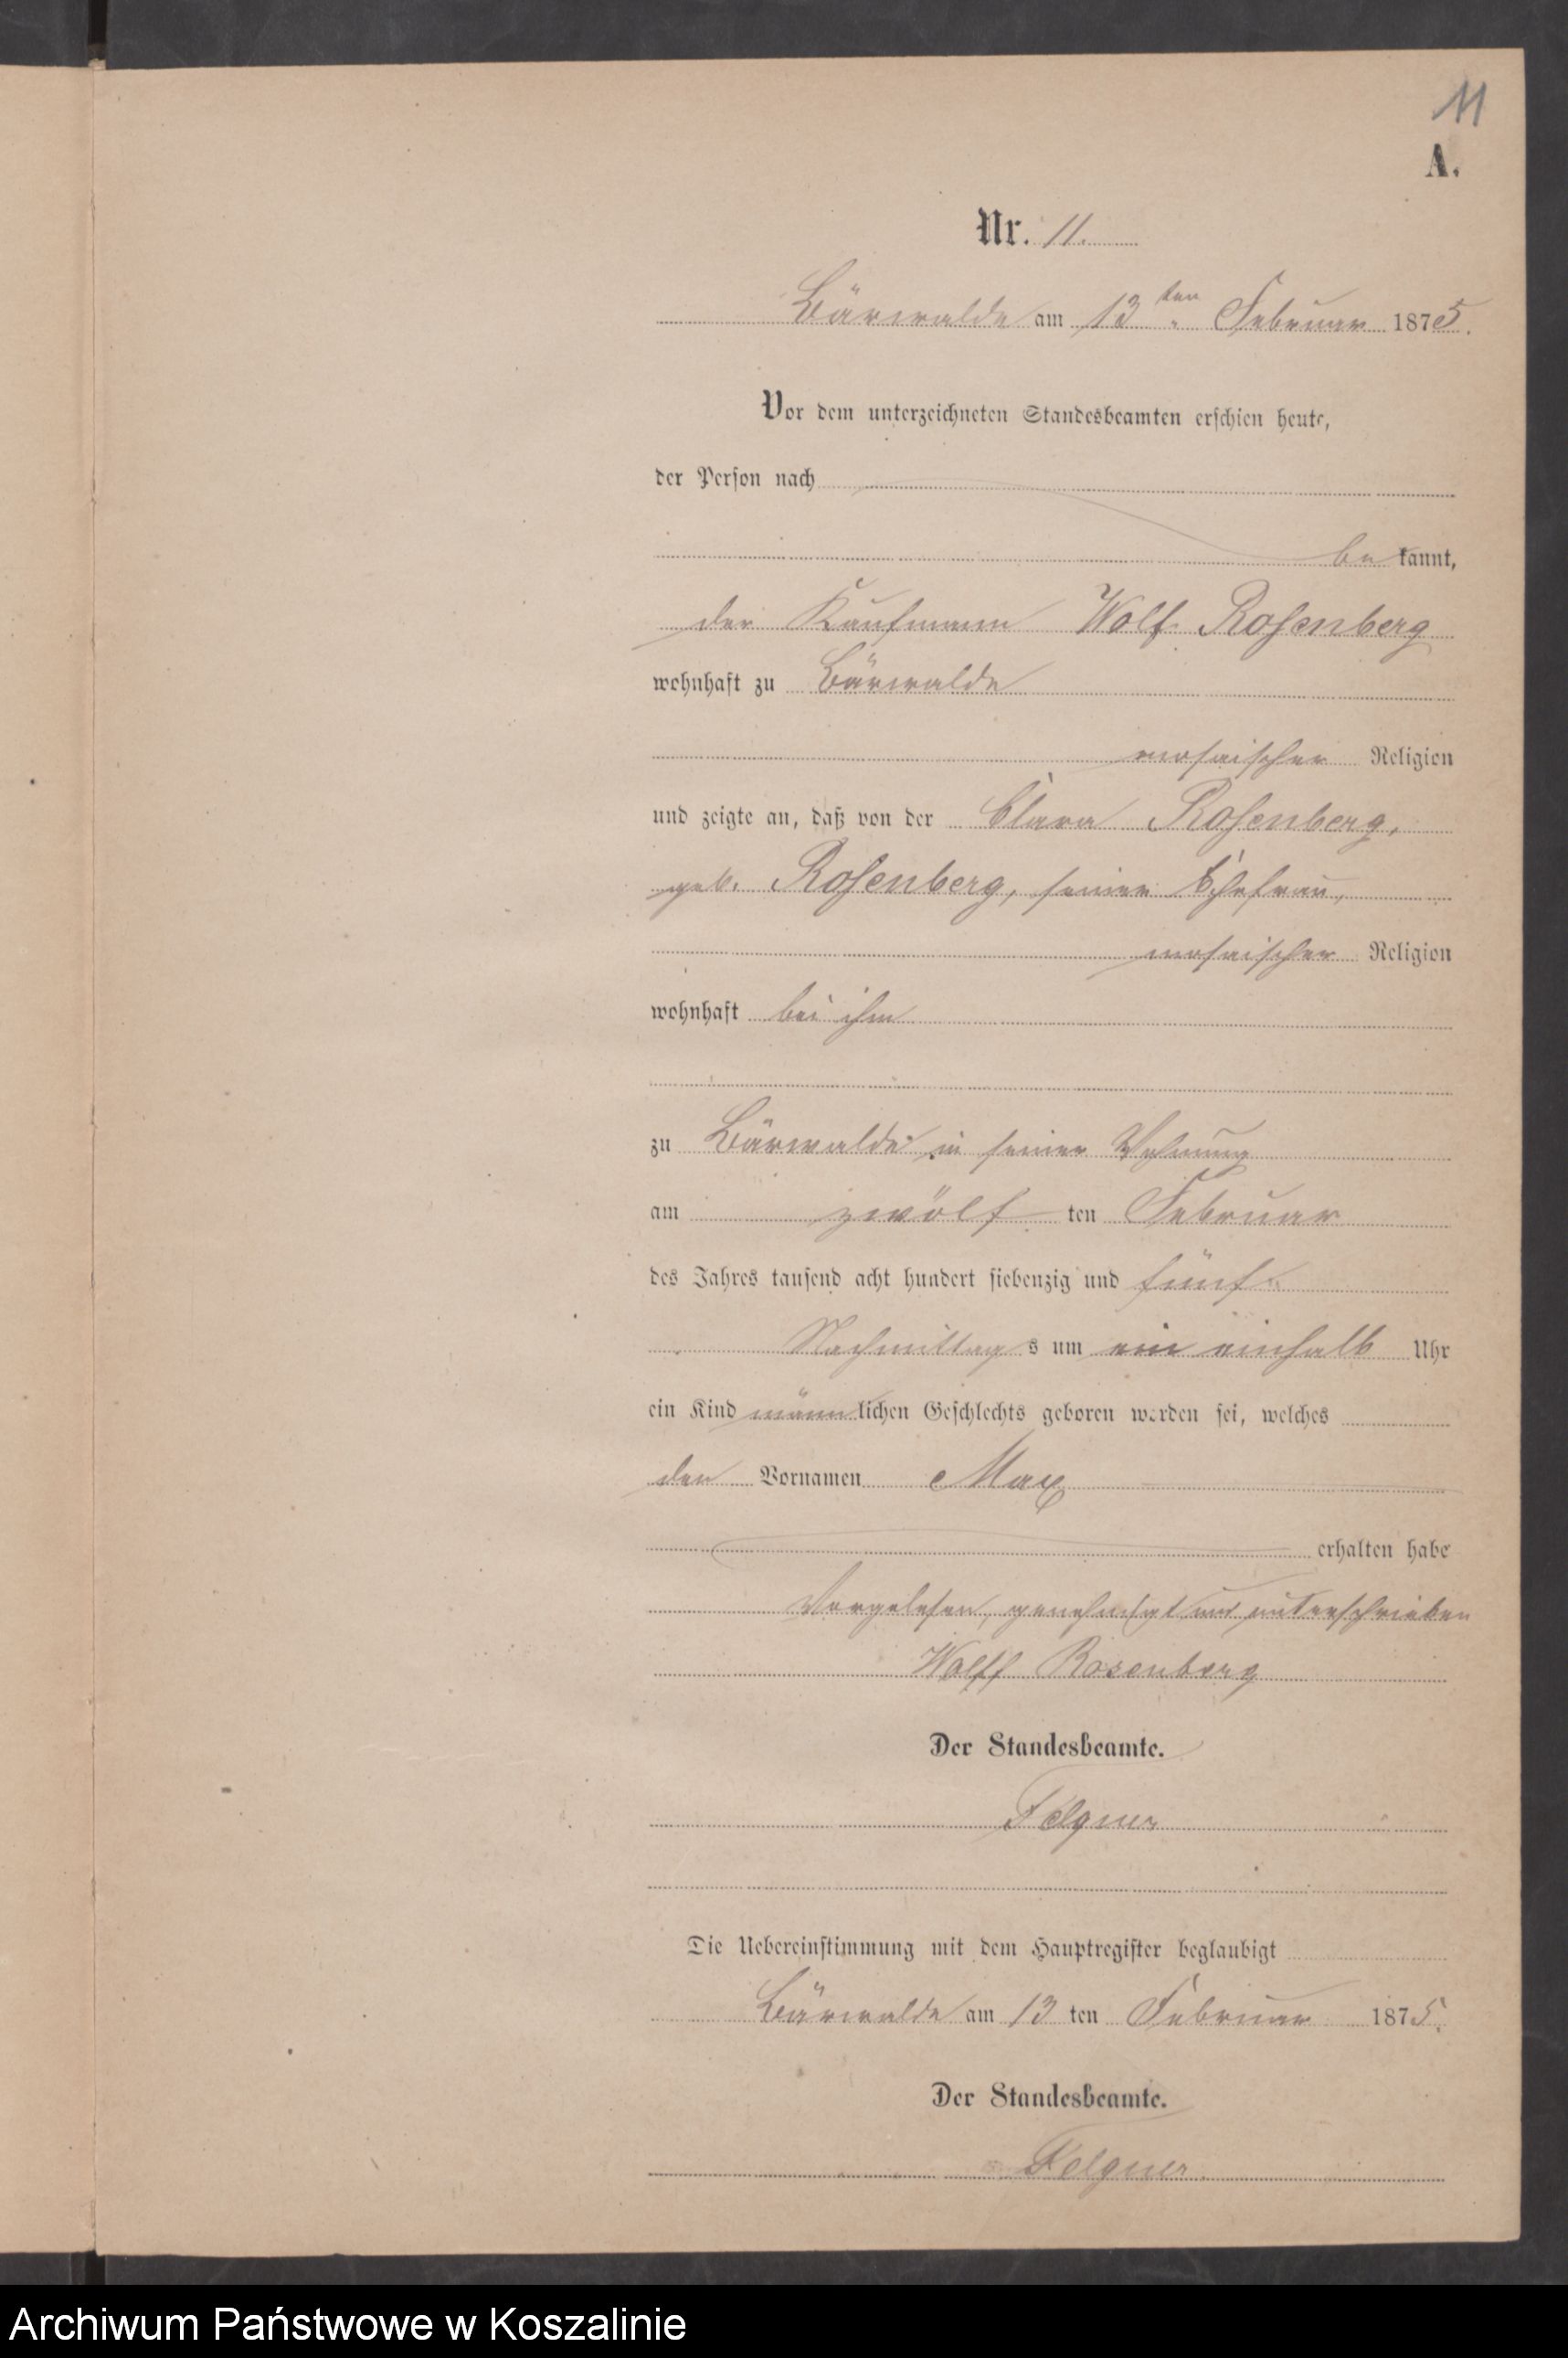 11
A.
Nr. 11.
Bärwalde am 13ten Februar 1875.
Vor dem unterzeichneten Standesbeamten erschien heute,
der Person nach
be kannt,
der Kaufmann Wolf Rosenberg
wohnhaft zu Bärwalde
mosaischer Religion
und zeigte an, daß von der Clara Rosenberg,
geb. Rosenberg, seiner Ehefrau,
mosaischer Religion
wohnhaft bei ihm
zu Bärwalde in seiner Wohnung
am zwölf ten Februar
des Jahres tausend acht hundert siebenzig und fünf
Nachmittag s um ein einhalb Uhr
ein Kind männ lichen Geschlechts geboren worden sei, welches
den Vornamen Max
erhalten habe
Vorgelesen, genehmigt und unterschrieben
Wolff Rosenberg
Der Standesbeamte.
Felgner
Die Uebereinstimmung mit dem Hauptregister beglaubigt
Bärwalde am 13 ten Februar 1875.
Der Standesbeamte.
Felgner.
Archiwum Państwowe w Koszalinie